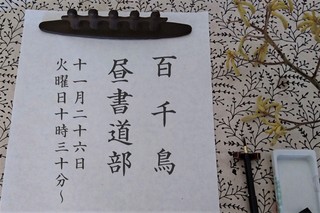 百千鳥
昼書道部
十一月二十六日
火曜日十時三十分～